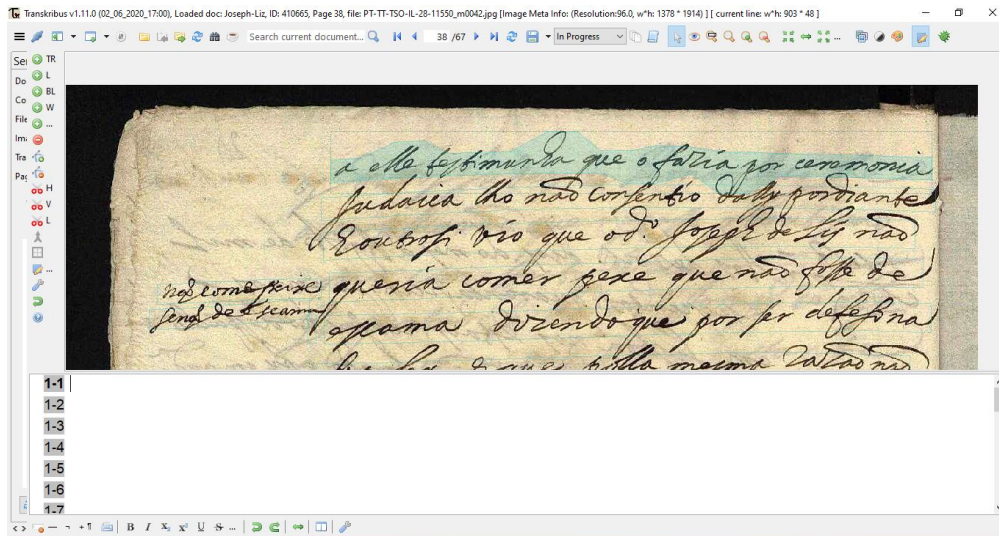 Transkribus v1.11.0 (02_06_2020_17:00), Loaded doc: Joseph-Liz, ID: 410665, Page 38, file: PT-TT-TSO-IL-28-11550_m0042.jpg [Image Meta Info: (Resolution:96.0, w*h: 1378 * 1914) ] [ current line: w*h: 903 * 48 ]
Search current document... 38 /67 In Progress
Ser TR
Do L
Co BL
W
File ...
Ima
Tra
Pag
H
V
L
...
a elle testimunha que o fazia por ceremonia
Judaica lho não consentio dahy pordiante
E outrosi vio que o d.º Joseph de Lis não
queria comer pexe que não fosse de
não come peixe
senão de escama
escama dizendo que por ser defeso na
polla mesma razão não
1-1
1-2
1-3
1-4
1-5
1-6
1-7
B I X₂ X² U S ...